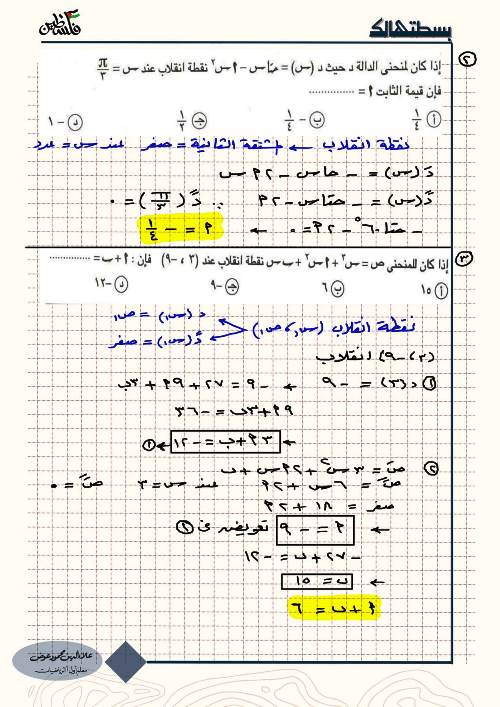 بسطتهالك
فلسطين
٢ إذا كان لمنحنى الدالة د حيث د (س) = حتاس − ٢س٢ نقطة انقلاب عند س = π/٣
فإن قيمة الثابت ٢ = ...............
أ ١/٤ ب − ١/٤ جـ ١/٢ د − ١
نقطة انقلاب ← المشتقة الثانية = صفر عند س = عدد
دَ(س) = − حاس − ٢٢ س
دً(س) = − حتاس − ٢٢ ∴ دً(π/٣) = ٠
− حتا ٦٠° − ٢٢ = ٠ ← ٢ = − ١/٤
٣ إذا كان للمنحنى ص = س٣ + ٢س٢ + ب س نقطة انقلاب عند (٣ ، −٩) فإن : ٢ + ب = ...............
أ ١٥ ب ٦ جـ −٩ د −١٢
نقطة انقلاب (س١، ص١) د (س١) = ص١
دً(س١) = صفر
(٣، −٩) انقلاب
١ د(٣) = −٩ ← −٩ = ٢٧ + ٢٩ + ٣ب
٢٩ + ٣ب = −٣٦
← ٢٣ + ب = −١٢ ← ١
٢ صَ = ٣س٢ + ٢٢س + ب
صً = ٦س + ٢٢ عند س = ٣ صً = ٠
صفر = ١٨ + ٢٢
← ٢ = −٩ تعويض في ١
−٢٧ + ب = −١٢
← ب = ١٥
٢ + ب = ٦
علاء الدين محمود عوض
معلم أول أ الرياضيات